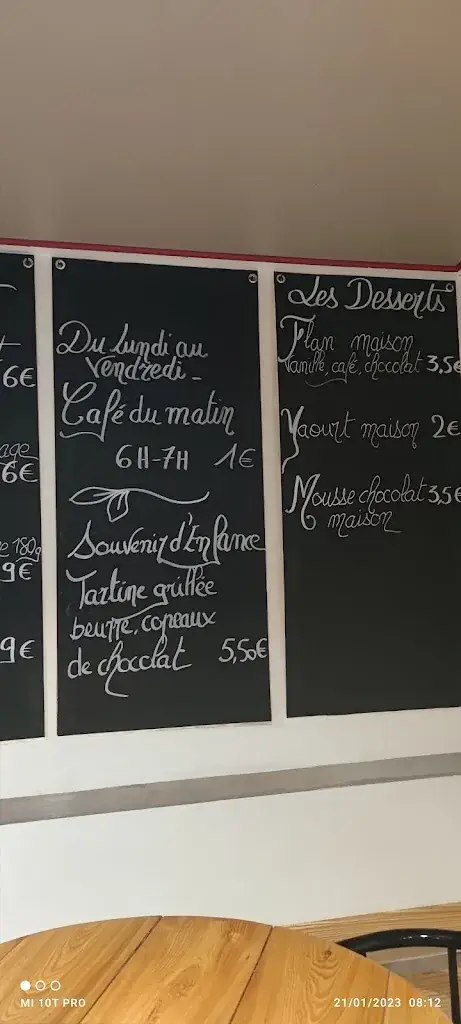 6€
age
6€
180g
9€
9€
Du Lundi au
Vendredi -
Café du matin
6H-7H 1€
Souvenir d'Enfance
Tartine grillée
beurre, copeaux
de chocolat 5,50€
Les Desserts
Flan maison
Vanille, café, chocolat 3,5€
Yaourt maison 2€
Mousse chocolat 3,5€
maison
MI 10T PRO
21/01/2023 08:12